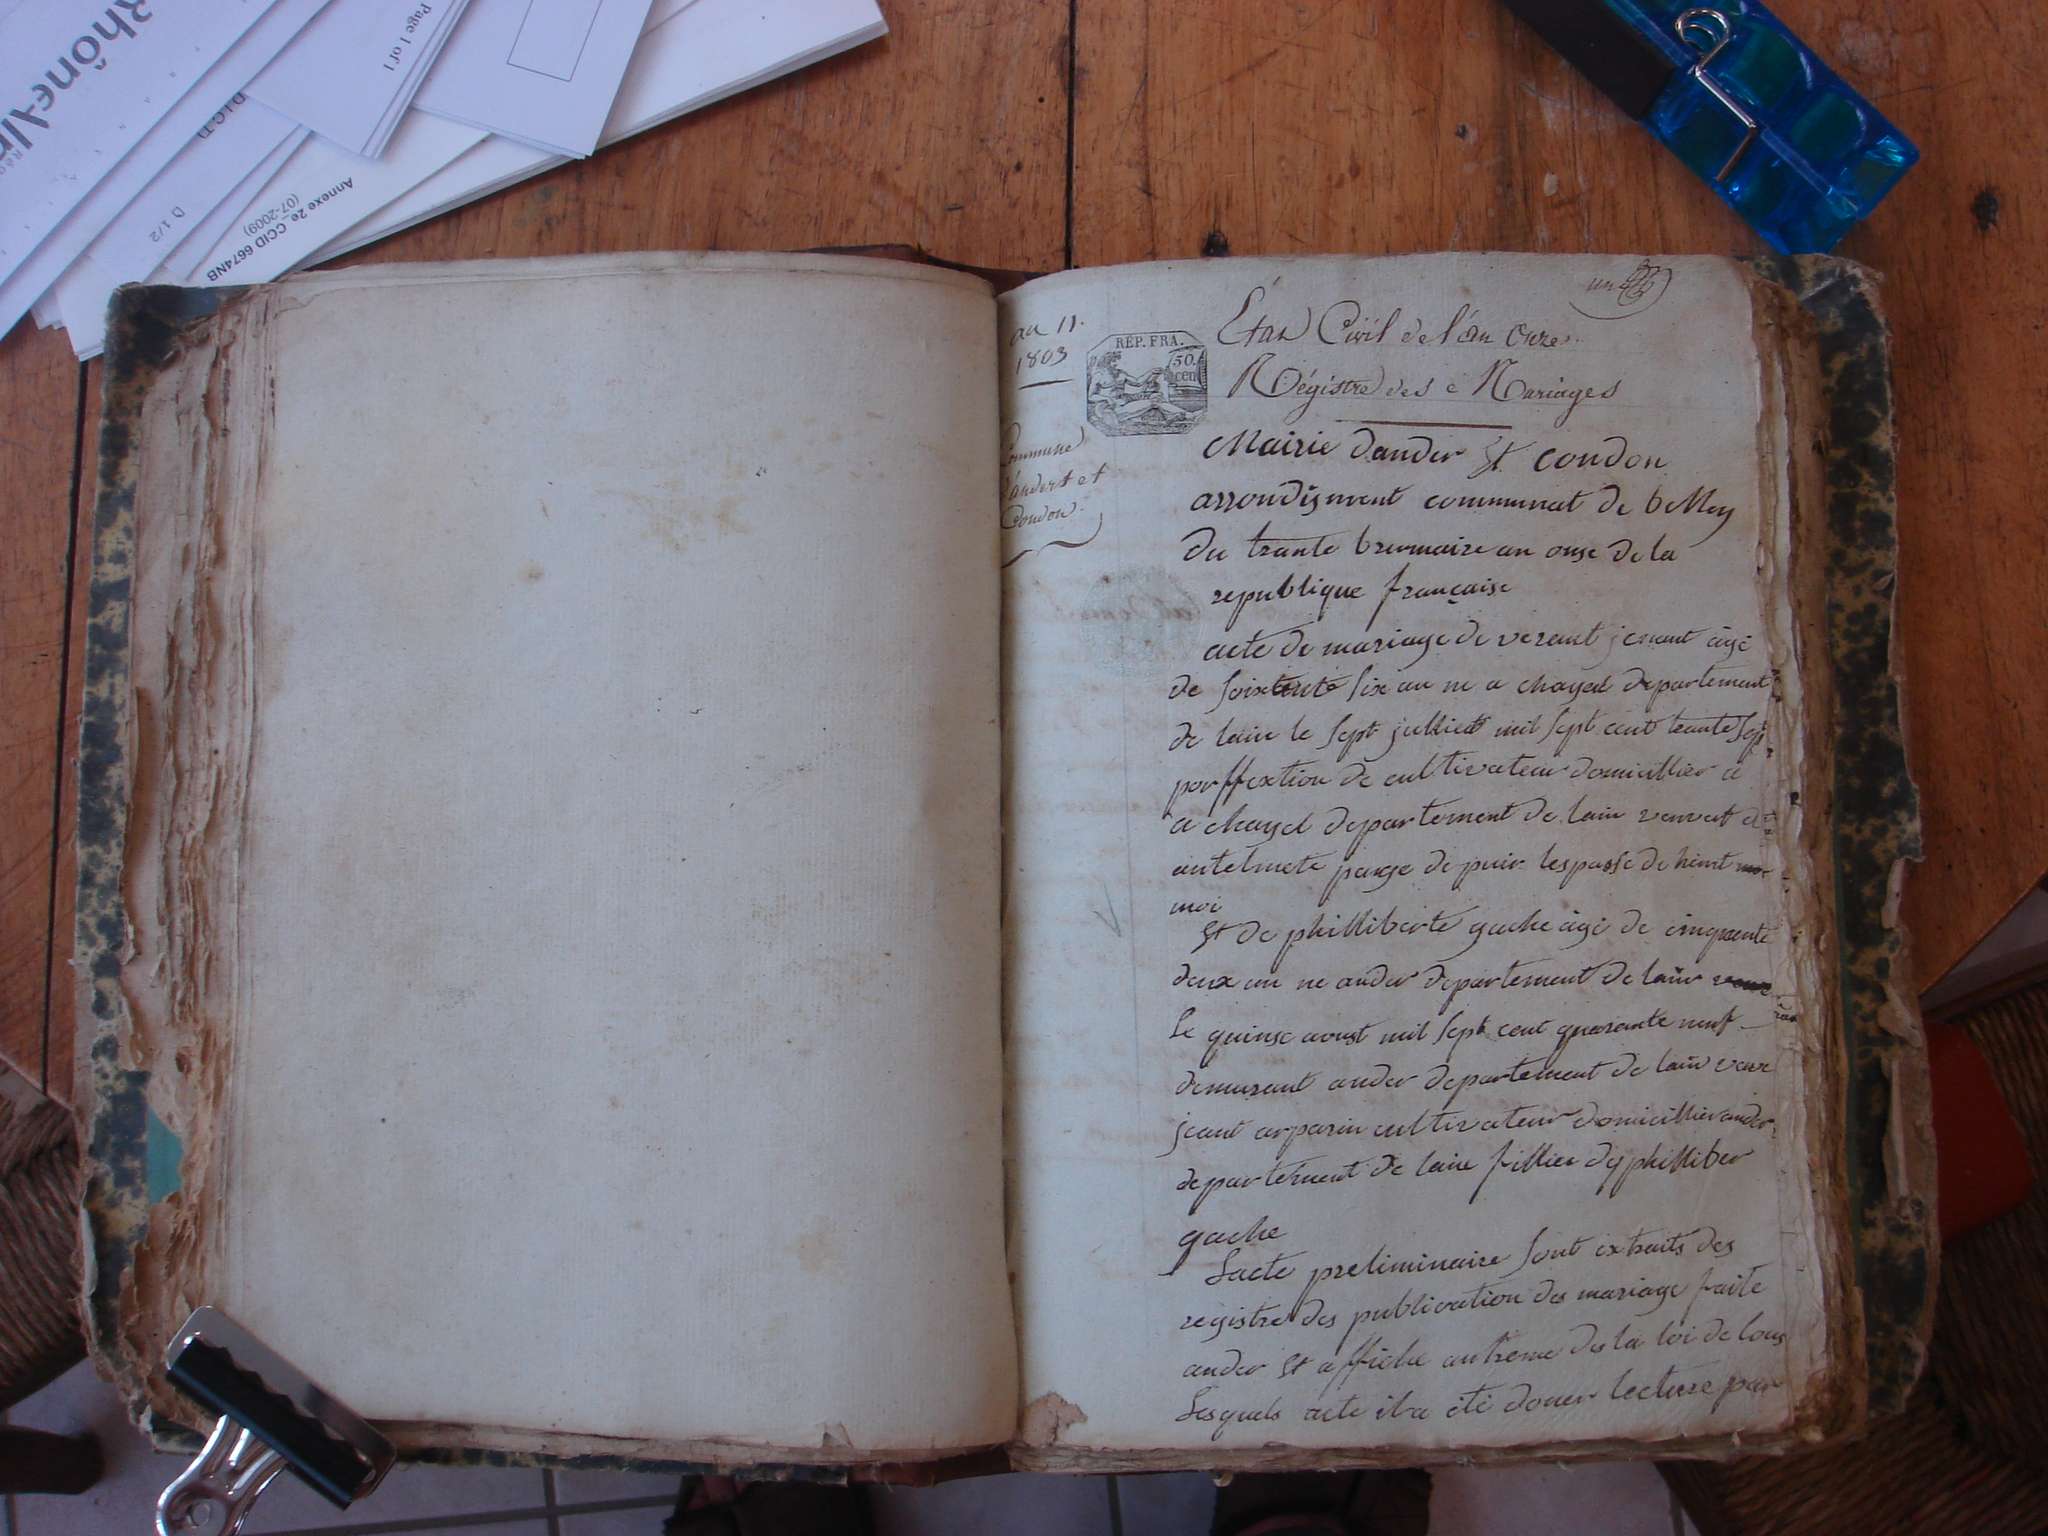 Rhône-Alp
Page 1 of 1
D I C T1
D 1/2
Annexe 2e_CCID 6674NB
(07-2009)
un
an 11.
1803
REP. FRA.
50.
cen
Commune
d'andert et
Condon.
Etat Civil de l'an Onze.
Régistre des Mariages
Mairie dander et condon
arrondisment communal de belley
du trante brumaire an onse de la
republique française
acte de mariage de verant jenant âgé
de soixtente six an ne a chayel departement
de lain le sept julliet mil sept cent trante sept
porffextion de cultivateur domicillier a
a chayel departement de lain
antelmete de puir lespasse de
moi
et de philliberte gache âgé de cinquente
deux an ne ander departement de lain
le quinse aoust mil sept cent quarante neuf
demurant ander departement de lain veuve
jeant arparin cultivateur domicillier ander
departement de lain fillier de philliber
gache
Lacte preliminaire sont extraits des
registre des publication de mariage faite
ander et affiche autreme de la loi de tous
Lesquels acte il a été doner lecture par